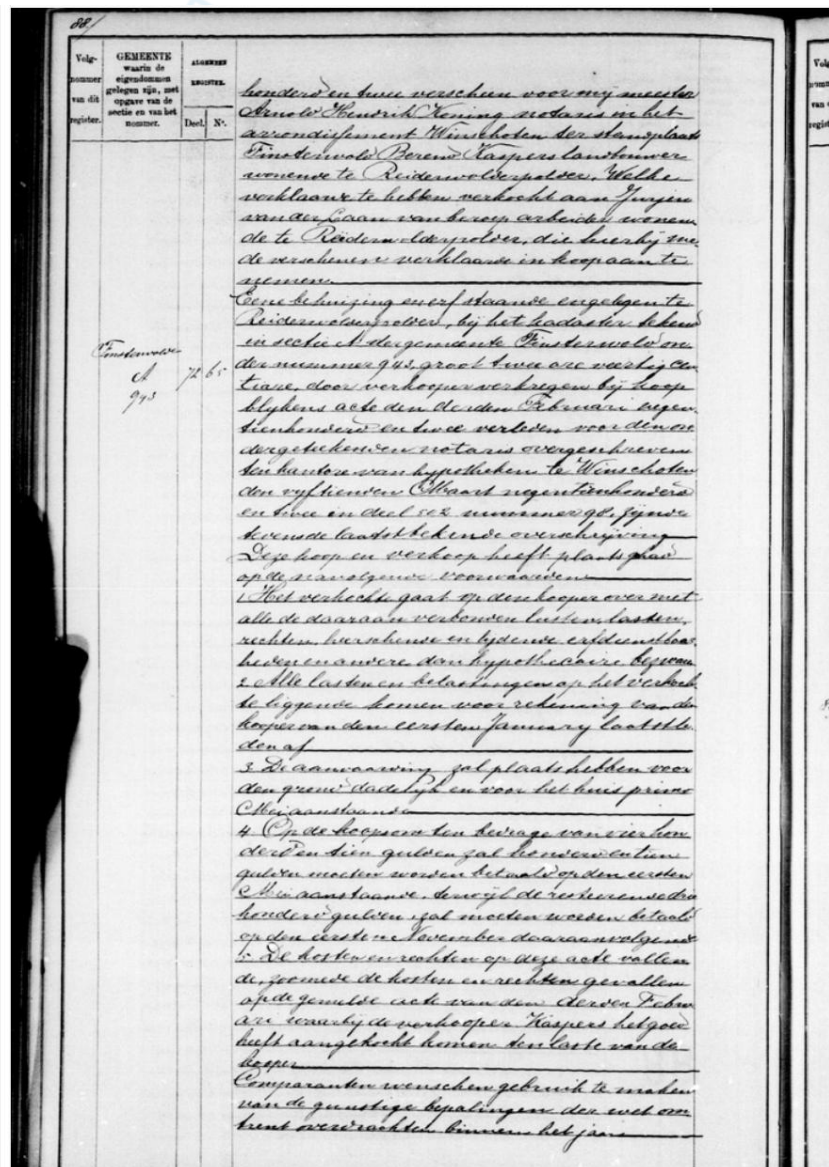 88/
Volg-
nummer
van dit
register.
GEMEENTE
waarin de
eigendommen
gelegen zijn, met
opgave van de
sectie en van het
nommer.
ALGEMEEN
REGISTER.
Deel.
No.
honderd en twee verscheen voor my meester
Arnold Hendrik Koning notaris in het
arrondissement Winschoten ter standplaats
Finsterwold Berend Kaspers landbouwer
wonende te Reiderwolderpolder, Welke
verklaarde te hebben verkocht aan Jurjen
van der Laan van beroep arbeider wonen
de te Reiderwolderpolder, die hierbij me
de verschenen verklaarde in koop aan te
nemen.
Eene behuizing en erf staande en gelegen te
Reiderwolderpolder, bij het kadaster bekend
in sectie A der gemeente Finsterwold on
der nummer 943, groot twee are veertig cen
tiare, door verkooper verkregen bij koop
blijkens acte den derden Februari negen
tienhonderd en twee verleden voor den on
dergetekenden notaris overgeschreven
ten kantore van hypotheken te Winschoten
den vyftienden Maart negentienhonderd
en twee in deel 502 nummer 98, zijnde
tevens de laatst bekende overschrijving
Deze koop en verkoop heeft plaats gehad
op de navolgende voorwaarden
1 Het verkochte gaat op den kooper over met
alle de daaraan verbonden lusten, lasten,
rechten, heerschende en lydende erfdienstbaar
heden en andere dan hypothecaire bezwaren
2 Alle lasten en belastingen op het verkoch
te liggende komen voor rekening van den
kooper van den eersten January laatstle
den af
3 De aanvaarding zal plaats hebben voor
den grond dadelijk en voor het huis primo
Mei aanstaande
4 Op de koopsom ten bedrage van vierhon
derd en tien gulden zal honderd en tien
gulden moeten worden betaald op den eersten
Mei aanstaande, terwijl de resteerende drie
honderd gulden zal moeten worden betaald
op den eersten November daaraanvolgende
5 De kosten en rechten op deze acte vallen
de, zoomede de kosten en rechten gevallen
op de gemelde acte van den derden Febru
ari waarbij de verkooper Kaspers het goed
heeft aangekocht komen ten laste van den
kooper
Comparanten wenschen gebruik te maken
van de gunstige bepalingen der wet om
trent overdrachten binnen het jaar
Finsterwolde
A
943
72 65